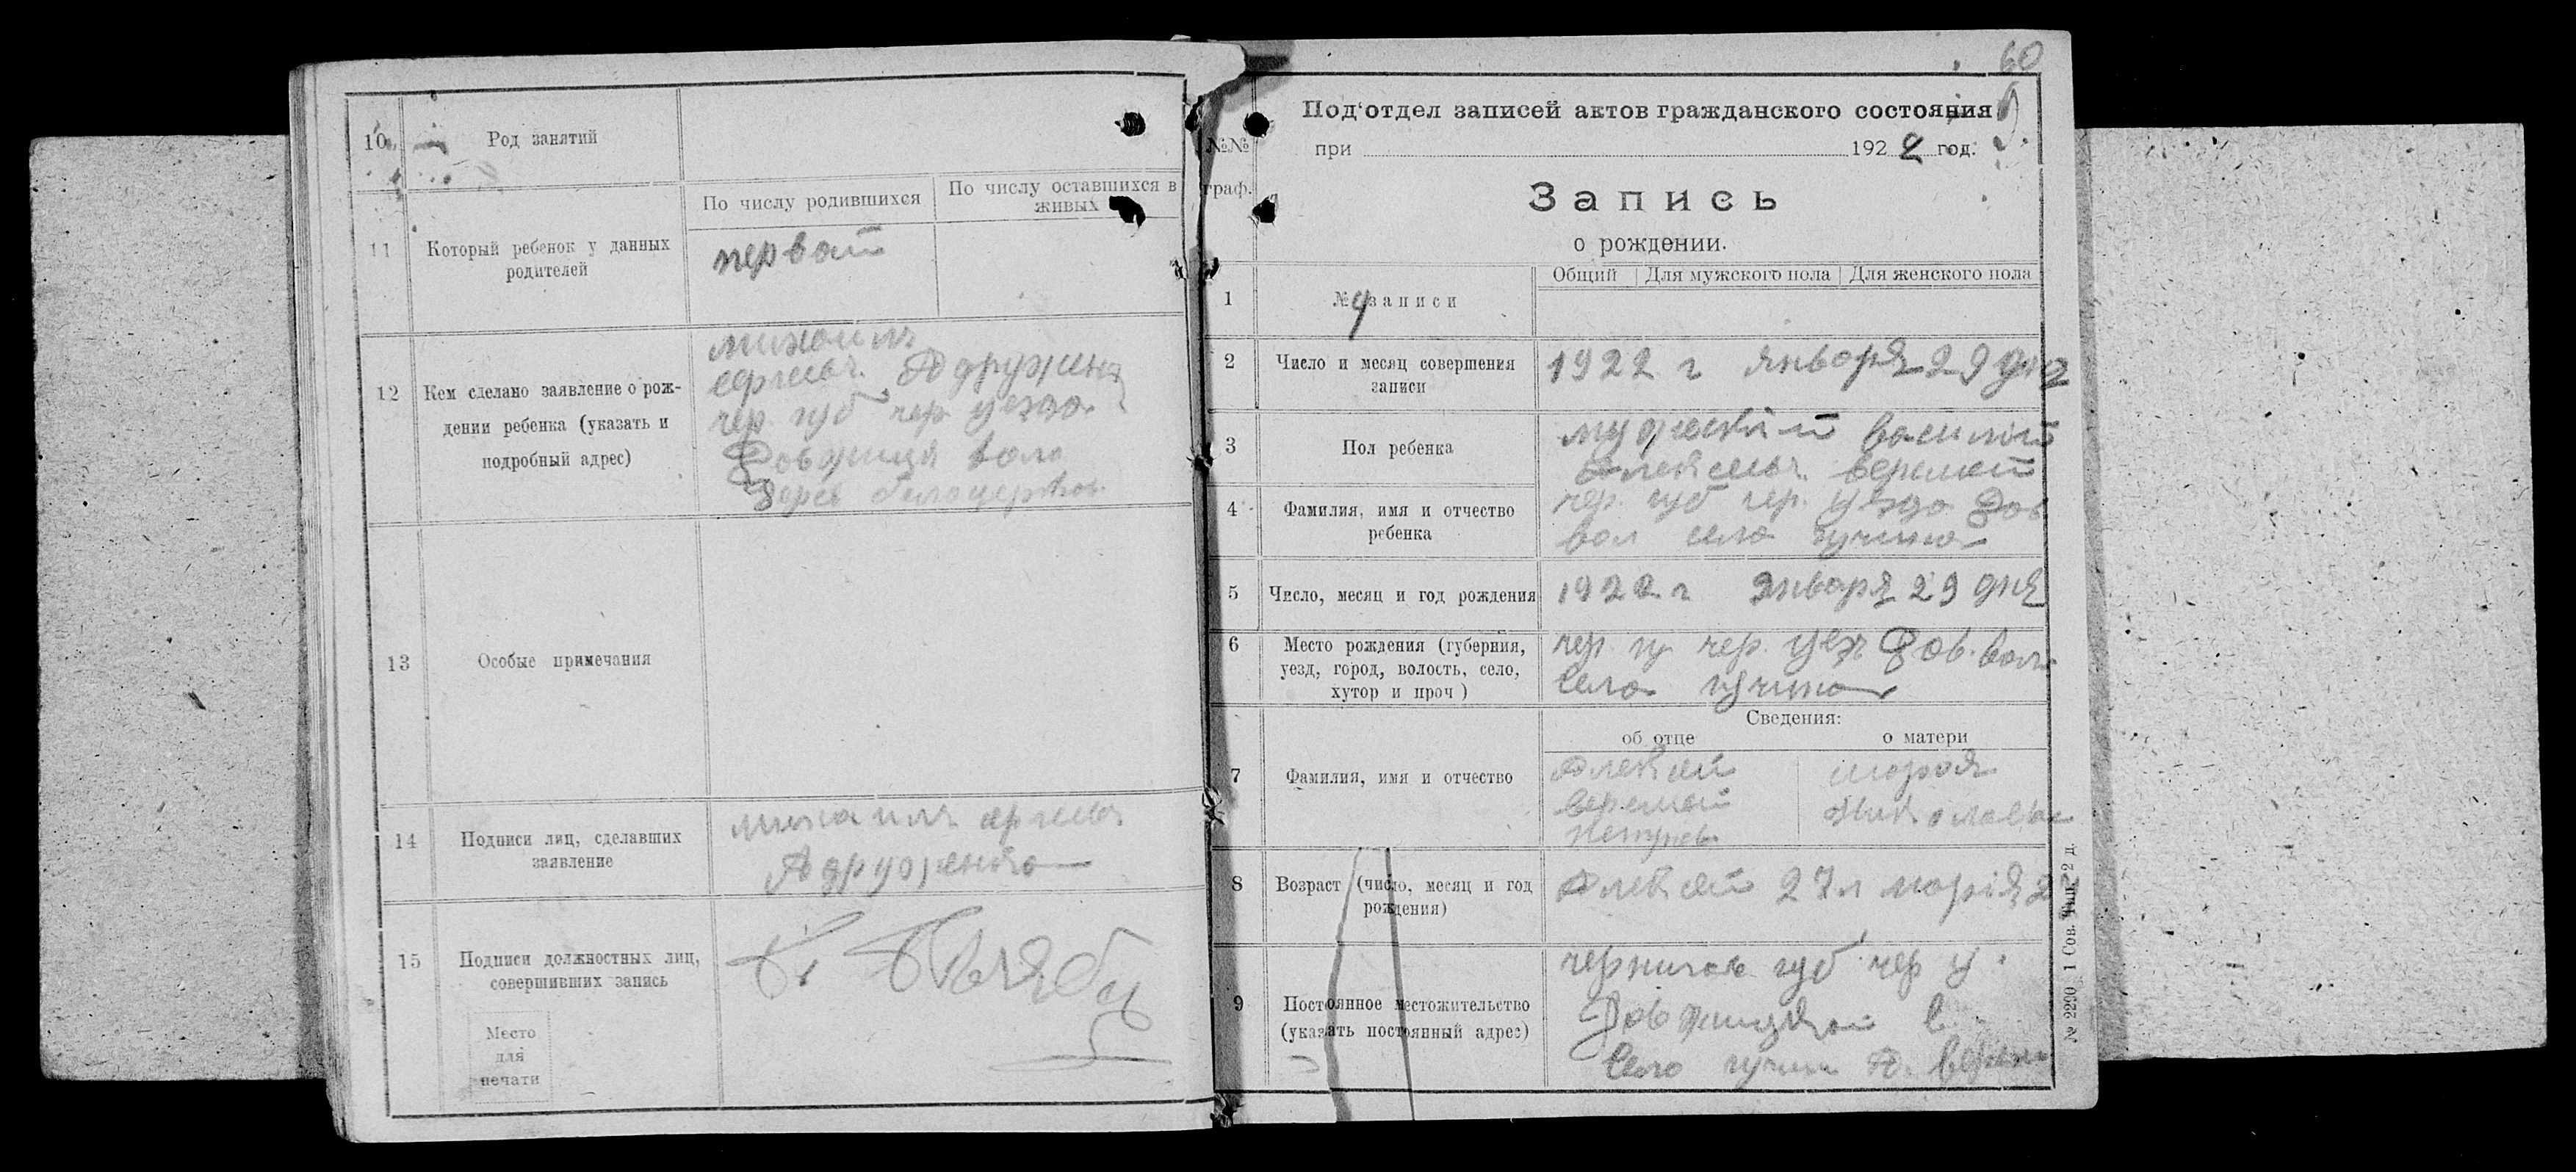 10
Род занятий
11
Который ребенок у данных
родителей
По числу родившихся
По числу оставшихся в
живых
первай
12
Кем сделано заявление о рож-
дении ребенка (указать и
подробный адрес)
михаилъ
чер. губ чер. уезда
13
Особые примечания
14
Подписи лиц, сделавших
заявление
михаилъ
15
Подписи должностных лиц,
совершивших запись
Место
для
печати
60
Под‘отдел записей актов гражданского состояния
при 1922 год.
№№
граф.
Запись
о рождении.
Общий Для мужского пола Для женского пола
1
№ записи
4
2
Число и месяц совершения
записи
1922 г января 29 дня
3
Пол ребенка
мужскай василий
4
Фамилия, имя и отчество
ребенка
чер. губ чер. уезда Дов
вол села
5
Число, месяц и год рождения
1922 г января 29 дня
6
Место рождения (губерния,
уезд, город, волость, село,
хутор и проч )
чер. гу чер. уез Дов. вол.
села
Сведения:
об отце
о матери
7
Фамилия, имя и отчество
Алексей
веремей
петров
мария
николаев
8
Возраст (число, месяц и год
рождения)
Алексей 27 л марія
9
Постоянное местожительство
(указать постоянный адрес)
чернигов губ чер у.
село
№ 2290 1 Сов. Тип. 2 д.